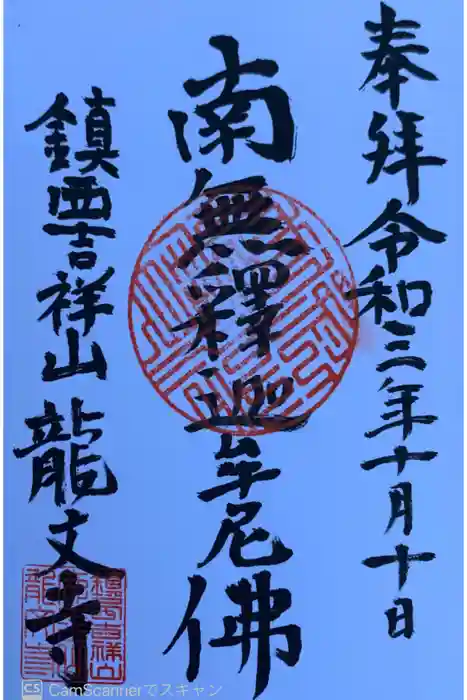 奉拝 令和三年十月十日
南無釋迦牟尼佛
鎮西吉祥山 龍文寺
CS CamScannerでスキャン